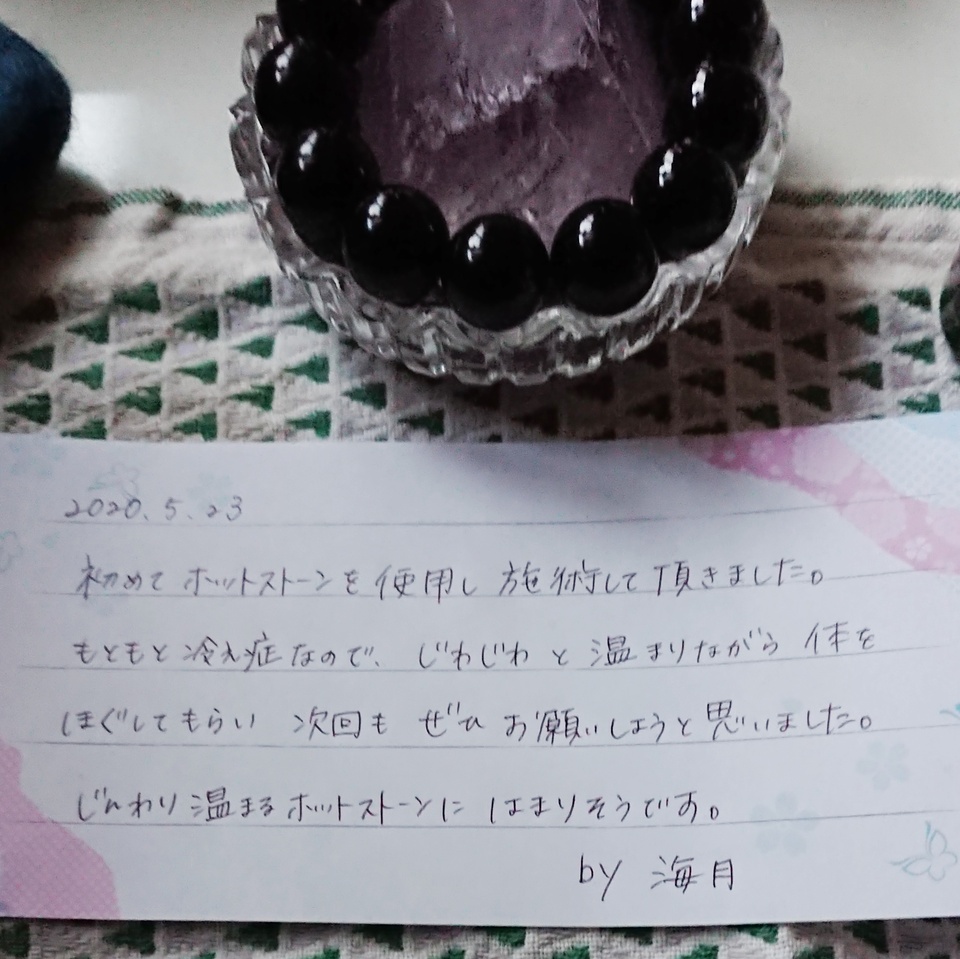 2020.5.23
初めてホットストーンを使用し施術して頂きました。
もともと冷え症なので、じわじわと温まりながら体を
ほぐしてもらい 次回も ぜひお願いしようと思いました。
じんわり温まるホットストーンに はまりそうです。
by 海月